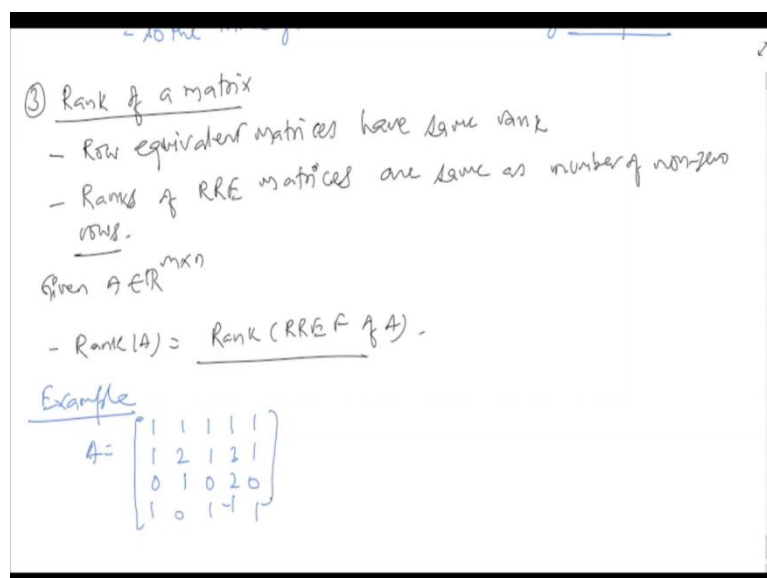 ③ Rank of a matrix
- Row equivalent matrices have same rank
- Ranks of RRE matrices are same as number of non-zero
rows.
Given A ∈ ℝ^{m×n}
- Rank(A) = Rank (RREF of A).
Example
A = [1 1 1 1 1
1 2 1 3 1
0 1 0 2 0
1 0 1 -1 1]